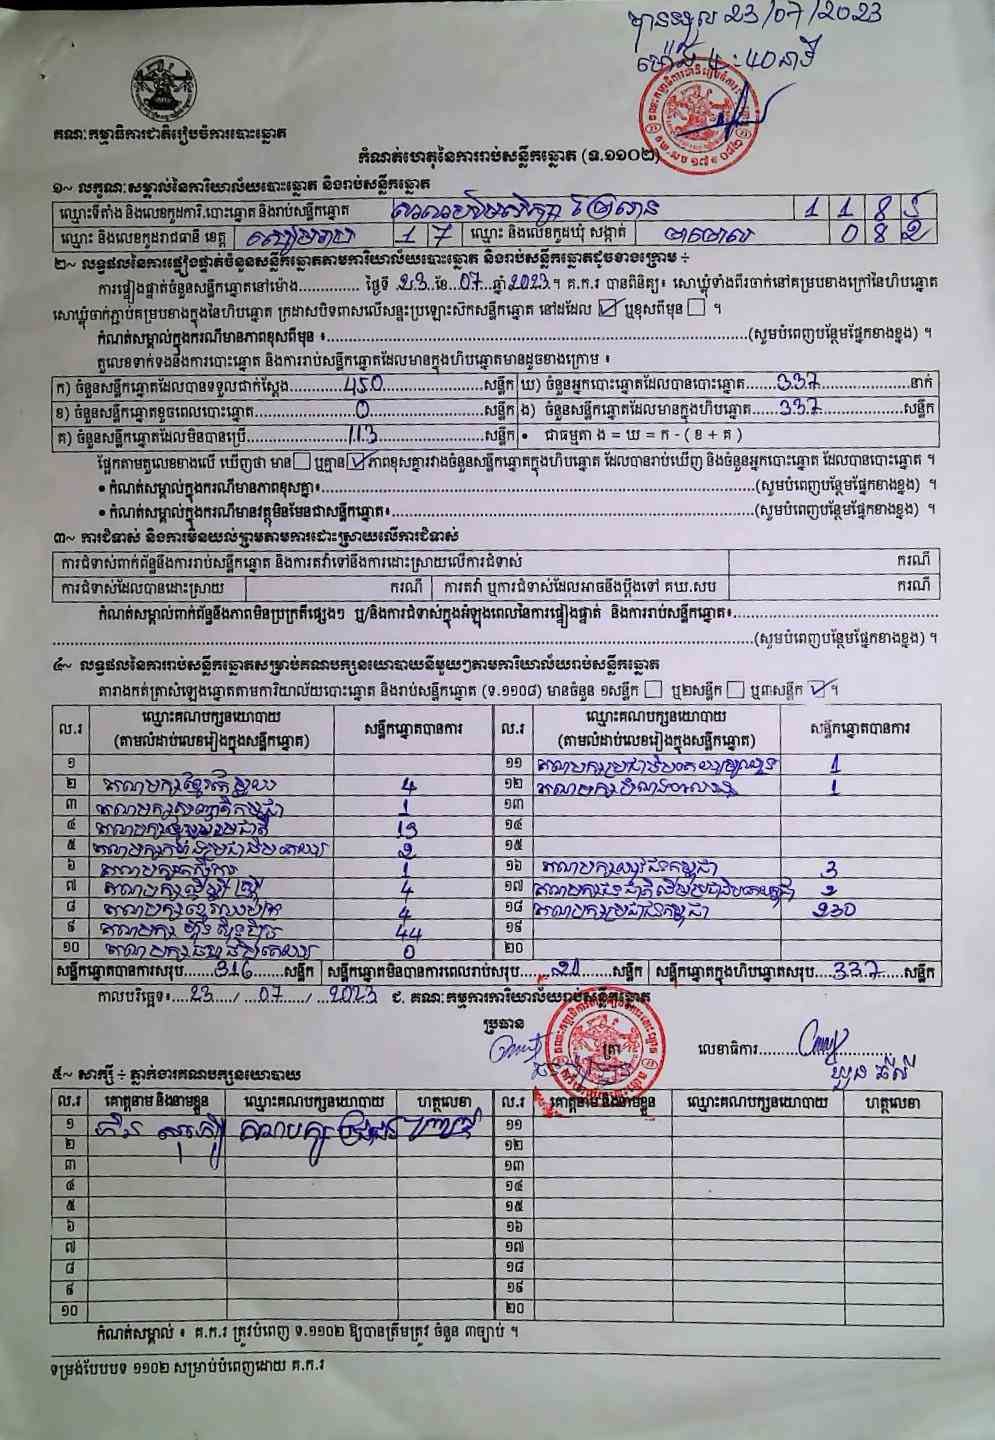 បានទទួល 23/07/2023
ម៉ោង 4:40នាទី
គណៈកម្មាធិការជាតិរៀបចំការបោះឆ្នោត
កំណត់ហេតុនៃការរាប់សន្លឹកឆ្នោត (ទ.១១០២)
១~ លក្ខណៈសម្គាល់នៃការិយាល័យបោះឆ្នោត និងរាប់សន្លឹកឆ្នោត
ឈ្មោះទីតាំង និងលេខកូដការិ.បោះឆ្នោត និងរាប់សន្លឹកឆ្នោត 1 1 8 5
ឈ្មោះ និងលេខកូដរាជធានី ខេត្ត សៀមរាប 1 7 ឈ្មោះ និងលេខកូដឃុំ សង្កាត់ 0 8 2
២~ លទ្ធផលនៃការផ្ទៀងផ្ទាត់ចំនួនសន្លឹកឆ្នោតតាមការិយាល័យបោះឆ្នោត និងរាប់សន្លឹកឆ្នោតដូចខាងក្រោម ÷
ការផ្ទៀងផ្ទាត់ចំនួនសន្លឹកឆ្នោតនៅម៉ោង............... ថ្ងៃទី 23 ខែ 07 ឆ្នាំ 2023 ។ គ.ក.រ បានពិនិត្យ៖ សោឃ្លុំទាំងពីរចាក់នៅគម្របខាងក្រៅនៃហិបឆ្នោត
សោឃ្លុំចាក់ភ្ជាប់គម្របខាងក្នុងនៃហិបឆ្នោត ក្រដាសបិទពាសលើសន្ទះប្រឡោះស៊កសន្លឹកឆ្នោត នៅដដែល ☑ ឬខុសពីមុន ☐ ។
កំណត់សម្គាល់ក្នុងករណីមានភាពខុសពីមុន ៖...............(សូមបំពេញបន្ថែមផ្នែកខាងខ្នង) ។
តួលេខទាក់ទងនឹងការបោះឆ្នោត និងការរាប់សន្លឹកឆ្នោតដែលមានក្នុងហិបឆ្នោតមានដូចខាងក្រោម ៖
ក) ចំនួនសន្លឹកឆ្នោតដែលបានទទួលជាក់ស្តែង 450 សន្លឹក ឃ) ចំនួនអ្នកបោះឆ្នោតដែលបានបោះឆ្នោត 337 នាក់
ខ) ចំនួនសន្លឹកឆ្នោតខូចពេលបោះឆ្នោត 0 សន្លឹក ង) ចំនួនសន្លឹកឆ្នោតដែលមានក្នុងហិបឆ្នោត 337 សន្លឹក
គ) ចំនួនសន្លឹកឆ្នោតដែលមិនបានប្រើ 113 សន្លឹក • ជាធម្មតា ង = ឃ = ក - ( ខ + គ )
ផ្អែកតាមតួលេខខាងលើ ឃើញថា មាន ☐ ឬគ្មាន ☑ ភាពខុសគ្នារវាងចំនួនសន្លឹកឆ្នោតក្នុងហិបឆ្នោត ដែលបានរាប់ឃើញ និងចំនួនអ្នកបោះឆ្នោត ដែលបានបោះឆ្នោត ។
• កំណត់សម្គាល់ក្នុងករណីមានភាពខុសគ្នា៖...............(សូមបំពេញបន្ថែមផ្នែកខាងខ្នង) ។
• កំណត់សម្គាល់ក្នុងករណីមានវត្ថុមិនមែនជាសន្លឹកឆ្នោត៖...............(សូមបំពេញបន្ថែមផ្នែកខាងខ្នង) ។
៣~ ការជំទាស់ និងការមិនយល់ព្រមតាមការដោះស្រាយលើការជំទាស់
ការជំទាស់ពាក់ព័ន្ធនឹងការរាប់សន្លឹកឆ្នោត និងការតវ៉ាទៅនឹងការដោះស្រាយលើការជំទាស់ ករណី
ការជំទាស់ដែលបានដោះស្រាយ ករណី ការតវ៉ា ឬការជំទាស់ដែលអាចនឹងប្តឹងទៅ គឃ.សប ករណី
កំណត់សម្គាល់ពាក់ព័ន្ធនឹងភាពមិនប្រក្រតីផ្សេងៗ ឬ/និងការជំទាស់ក្នុងអំឡុងពេលនៃការផ្ទៀងផ្ទាត់ និងការរាប់សន្លឹកឆ្នោត៖...............
...............(សូមបំពេញបន្ថែមផ្នែកខាងខ្នង) ។
៤~ លទ្ធផលនៃការរាប់សន្លឹកឆ្នោតសម្រាប់គណបក្សនយោបាយនីមួយៗតាមការិយាល័យរាប់សន្លឹកឆ្នោត
តារាងកត់ត្រាសំឡេងឆ្នោតតាមការិយាល័យបោះឆ្នោត និងរាប់សន្លឹកឆ្នោត (ទ.១១០៨) មានចំនួន ១សន្លឹក ☐ ឬ២សន្លឹក ☐ ឬ៣សន្លឹក ☑ ។
ល.រ ឈ្មោះគណបក្សនយោបាយ (តាមលំដាប់លេខរៀងក្នុងសន្លឹកឆ្នោត) សន្លឹកឆ្នោតបានការ ល.រ ឈ្មោះគណបក្សនយោបាយ (តាមលំដាប់លេខរៀងក្នុងសន្លឹកឆ្នោត) សន្លឹកឆ្នោតបានការ
១ ១១ 1
២ គណបក្សខ្មែរតែមួយ 4 ១២ 1
៣ 1 ១៣
៤ 19 ១៤
៥ 2 ១៥
៦ 1 ១៦ គណបក្សយុវជនកម្ពុជា 3
៧ 4 ១៧ 2
៨ 4 ១៨ គណបក្សប្រជាជនកម្ពុជា 230
៩ គណបក្សហ៊្វុនស៊ិនប៉ិច 44 ១៩
១០ 0 ២០
សន្លឹកឆ្នោតបានការសរុប 316 សន្លឹក សន្លឹកឆ្នោតមិនបានការពេលរាប់សរុប 21 សន្លឹក សន្លឹកឆ្នោតក្នុងហិបឆ្នោតសរុប 337 សន្លឹក
កាលបរិច្ឆេទ៖ 23 / 07 / 2023 ជ. គណៈកម្មការការិយាល័យរាប់សន្លឹកឆ្នោត
ប្រធាន
ត្រា លេខាធិការ
៥~ សាក្សី ÷ ភ្នាក់ងារគណបក្សនយោបាយ
ល.រ គោត្តនាម និងនាមខ្លួន ឈ្មោះគណបក្សនយោបាយ ហត្ថលេខា ល.រ គោត្តនាម និងនាមខ្លួន ឈ្មោះគណបក្សនយោបាយ ហត្ថលេខា
១ គណបក្ស ប្រជាជន ១១
២ ១២
៣ ១៣
៤ ១៤
៥ ១៥
៦ ១៦
៧ ១៧
៨ ១៨
៩ ១៩
១០ ២០
កំណត់សម្គាល់ ៖ គ.ក.រ ត្រូវបំពេញ ទ.១១០២ ឱ្យបានត្រឹមត្រូវ ចំនួន ៣ច្បាប់ ។
ទម្រង់បែបបទ ១១០២ សម្រាប់បំពេញដោយ គ.ក.រ